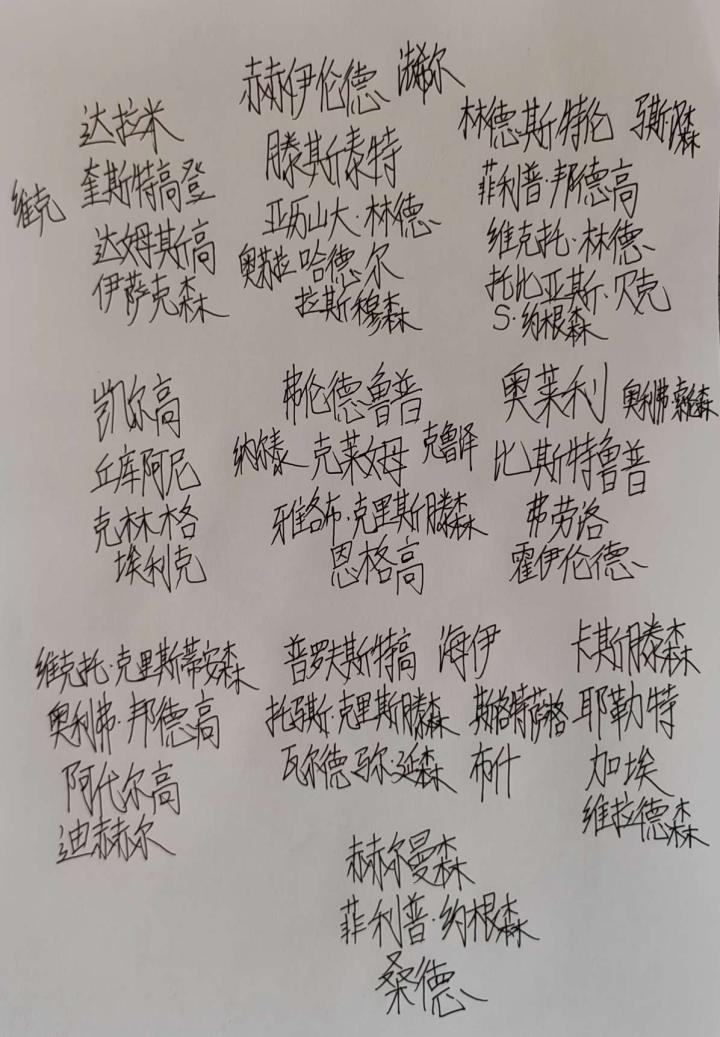 赫伊伦德 浠尔
达拉米
奎斯特高登
维克
达姆斯高
伊萨克森
滕斯泰特
亚历山大·林德
奥苏拉 哈德尔
拉斯穆森
林德斯特伦
菲利普·邦德高
维克托·林德
托比亚斯·贝克
S·约根森
凯尔高
丘库阿尼
克林格
埃利克
弗伦德鲁普
纳尔泰 克莱姆 克鲁泽
雅各布·克里斯滕森
恩格高
奥莱利
比斯特鲁普
弗劳洛
霍伊伦德
维克托·克里斯蒂安森
奥利弗·邦德高
阿代尔高
迪赫尔
普罗夫斯特高 海伊
托马斯·克里斯滕森 斯洛特萨格
瓦尔德马尔·延森 布什
卡斯滕森
耶勒特
加埃
维拉德森
赫尔曼森
菲利普·约根森
桑德